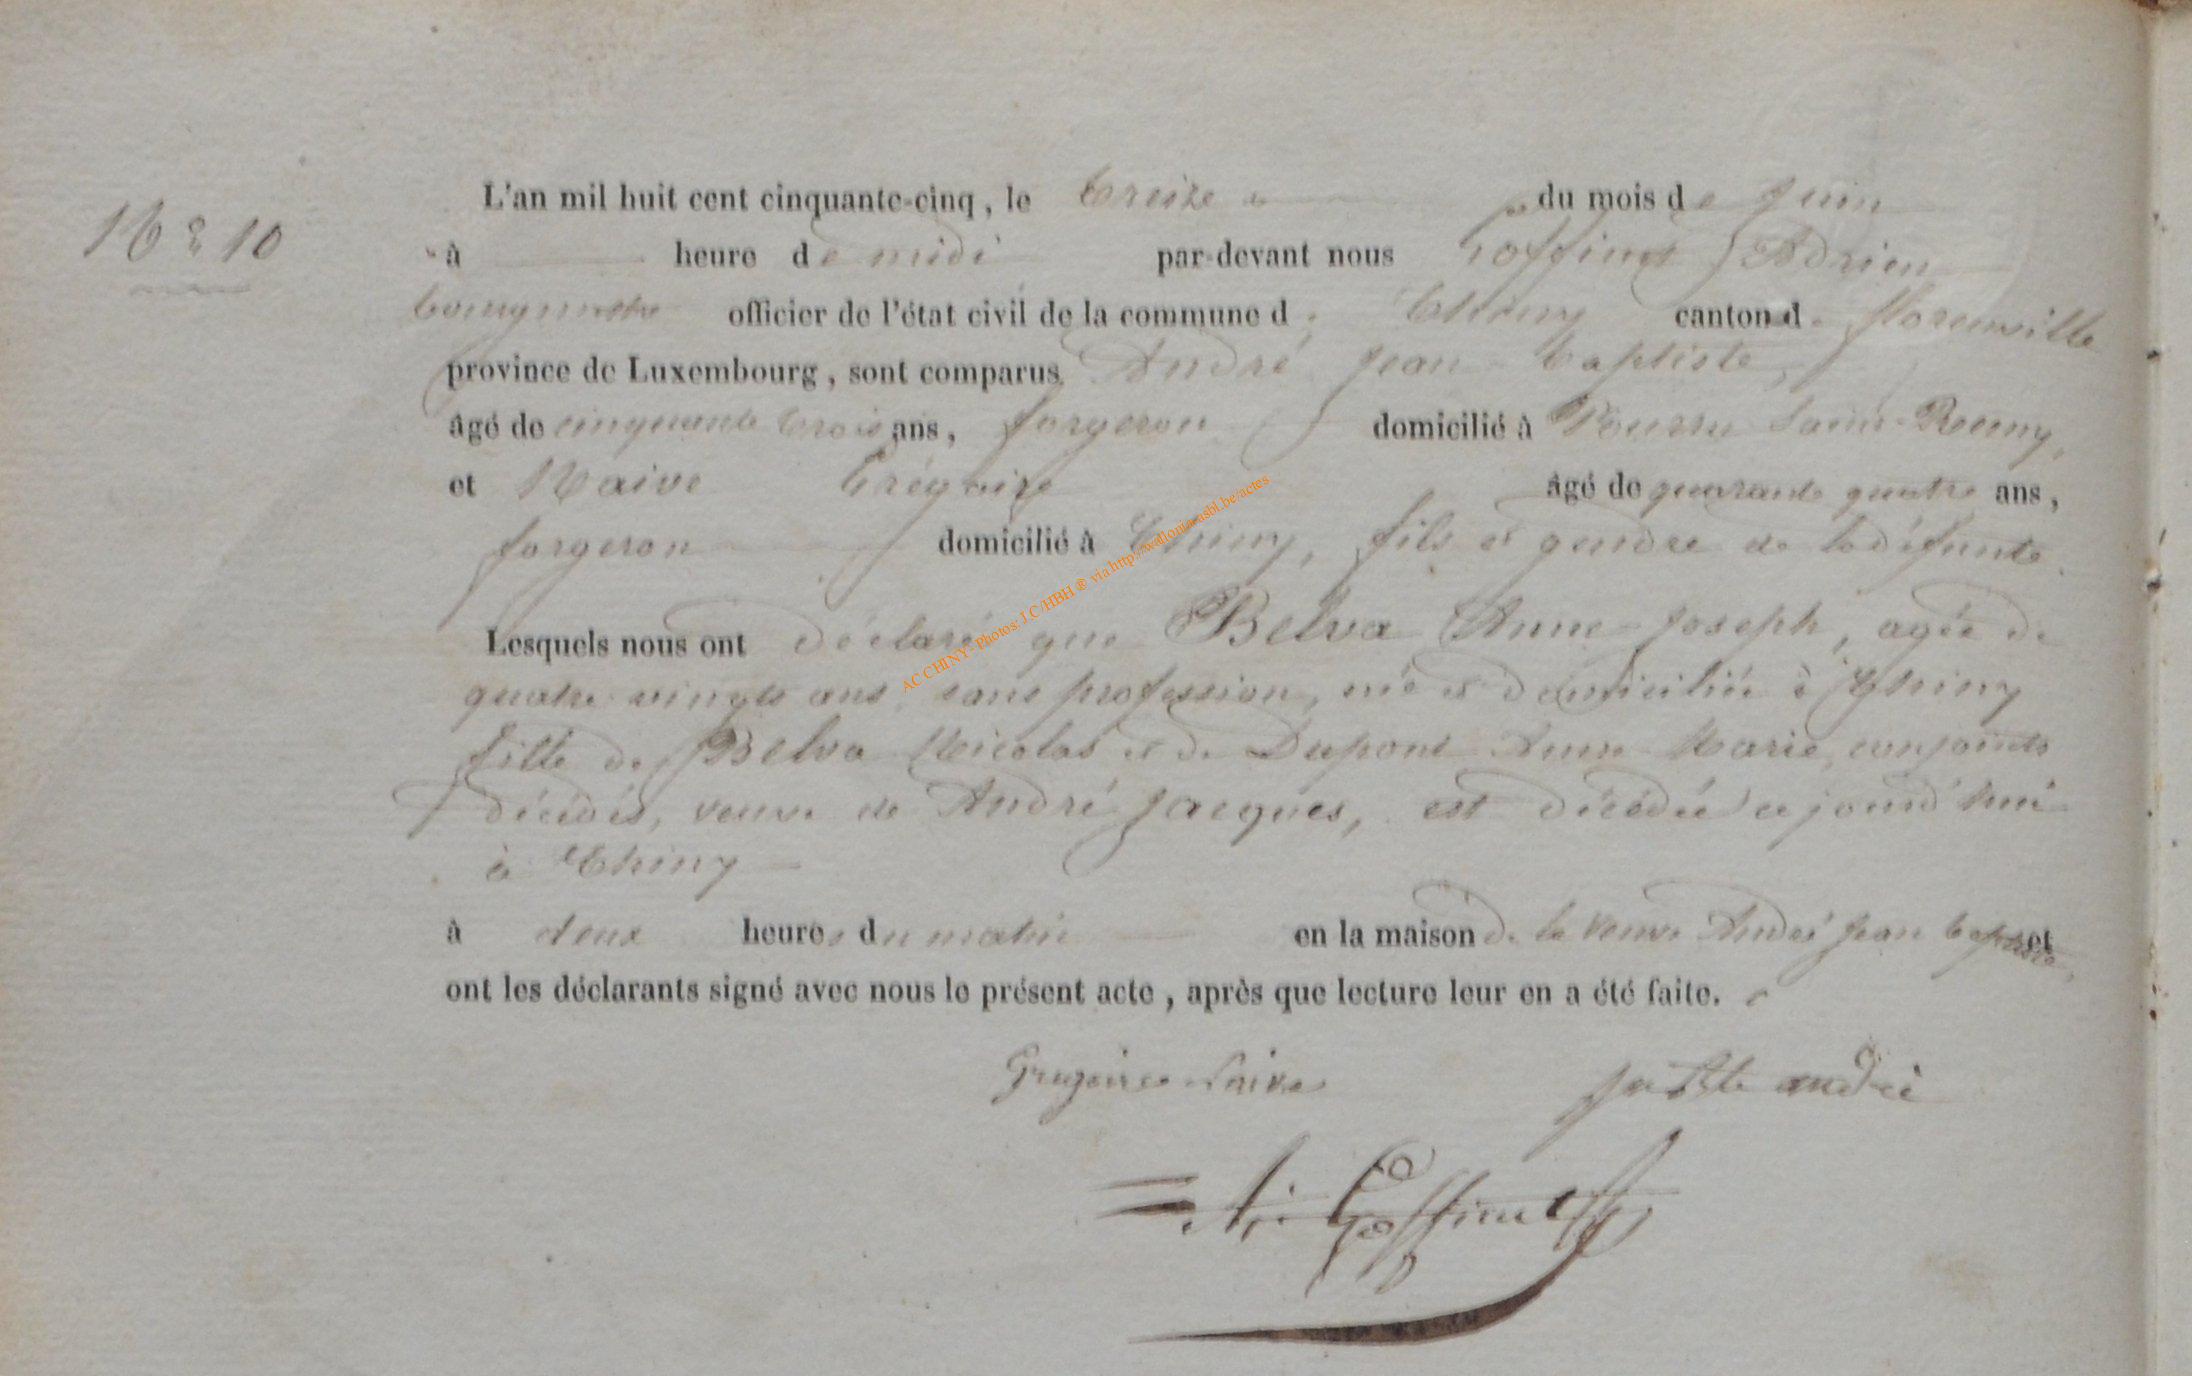 L'an mil huit cent cinquante-cinq, le treize du mois de juin
16 & 10
à heure de midi par-devant nous Goffinet Adrien
bourgmestre officier de l'état civil de la commune de Chiny canton de florenville
province de Luxembourg, sont comparus André Jean-baptiste,
âgé de cinquante trois ans, forgeron domicilié à Pourru Saint-Remy,
et Naive Grégoire âgé de quarante quatre ans,
forgeron domicilié à Chiny, fils et gendre de la défunte.
Lesquels nous ont déclaré que Belva Anne-Joseph, agée de
quatre-vingts ans, sans profession, née et domiciliée à Chiny
fille de Belva Nicolas et de Dupont Anne Marie, conjoints
décédés, veuve de André Jacques, est décédée ce jourd'hui
à Chiny
à deux heures du matin en la maison de la veuve André Jean baptiste, et
ont les déclarants signé avec nous le présent acte, après que lecture leur en a été faite.
Gregoire Naive J Bte andré
A. Goffinet
AC CHINY - Photos: J.C/HBH ® via http://wallonia-asbl.be/actes